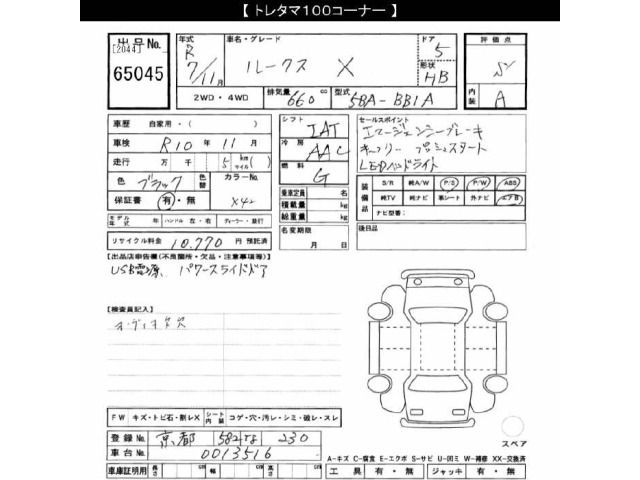 【 トレタマ100コーナー 】
出品No. 年式 車名・グレード ドア 評価点
[2044] R ルークス X 5 S
65045 7/11月 形状 HB
2WD・4WD 排気量 660 cc 型式 5BA-BB1A 内装 A
車歴 自家用・( ) シフト IAT セールスポイント
車検 R10年 11月 冷房 AAC エマージェンシーブレーキ
走行 万 千 5 km(マイル) ( ) 燃料 G キーフリー プッシュスタート
色 ブラック 色替 カラーNo. LEDヘッドライト
保証書 有・無 X42 乗車定員 名 装備品 S/R 純A/W P/S P/W ABS
積載量 kg 純TV 純ナビ 革シート 外ナビ エアB
モデル年式 年 ハンドル 左・右 ディーラー・並行 総重量 kg ナビ型番:
リサイクル料金 10,770 円 預託済 名変期限 後日品
月 日
【出品店申告欄(不良箇所・欠品・注意事項等)】
USB電源、パワースライドドア
【検査員記入】
オーディオレス
FW キズ・トビ石・削レX シート内装 コゲ・穴・汚レ・シミ・破レ・スレ
登録No. 京都 582 230
車台No. 0013516 スペア
A-キズ C-腐食 E-エクボ S-サビ U-凹ミ W-補修 XX-交換済
車庫証明用 長さ cm 幅 cm 高さ cm 工具 有・無 ジャッキ 有・無